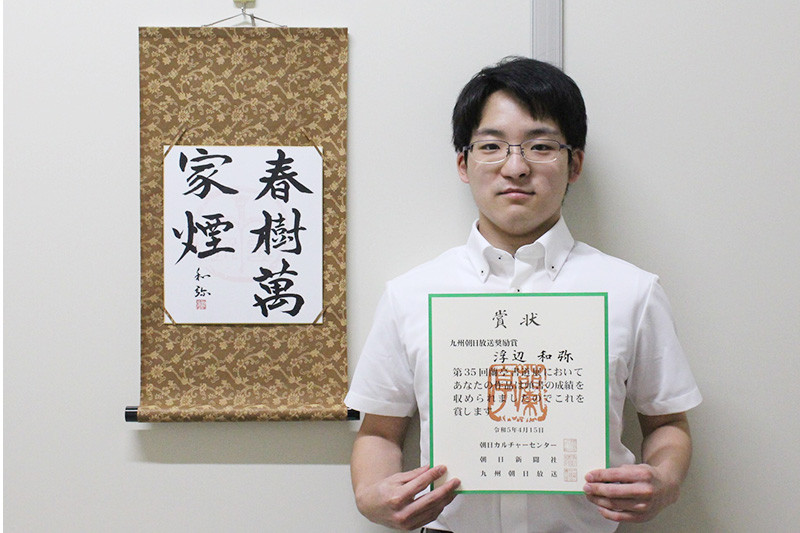 春樹萬
家煙
和弥
賞状
九州朝日放送奨励賞
浮辺 和弥
第35回 書道展において
あなたの作品は頭書の成績を
収められましたのでこれを
賞します
令和5年4月15日
朝日カルチャーセンター
朝日新聞社
九州朝日放送